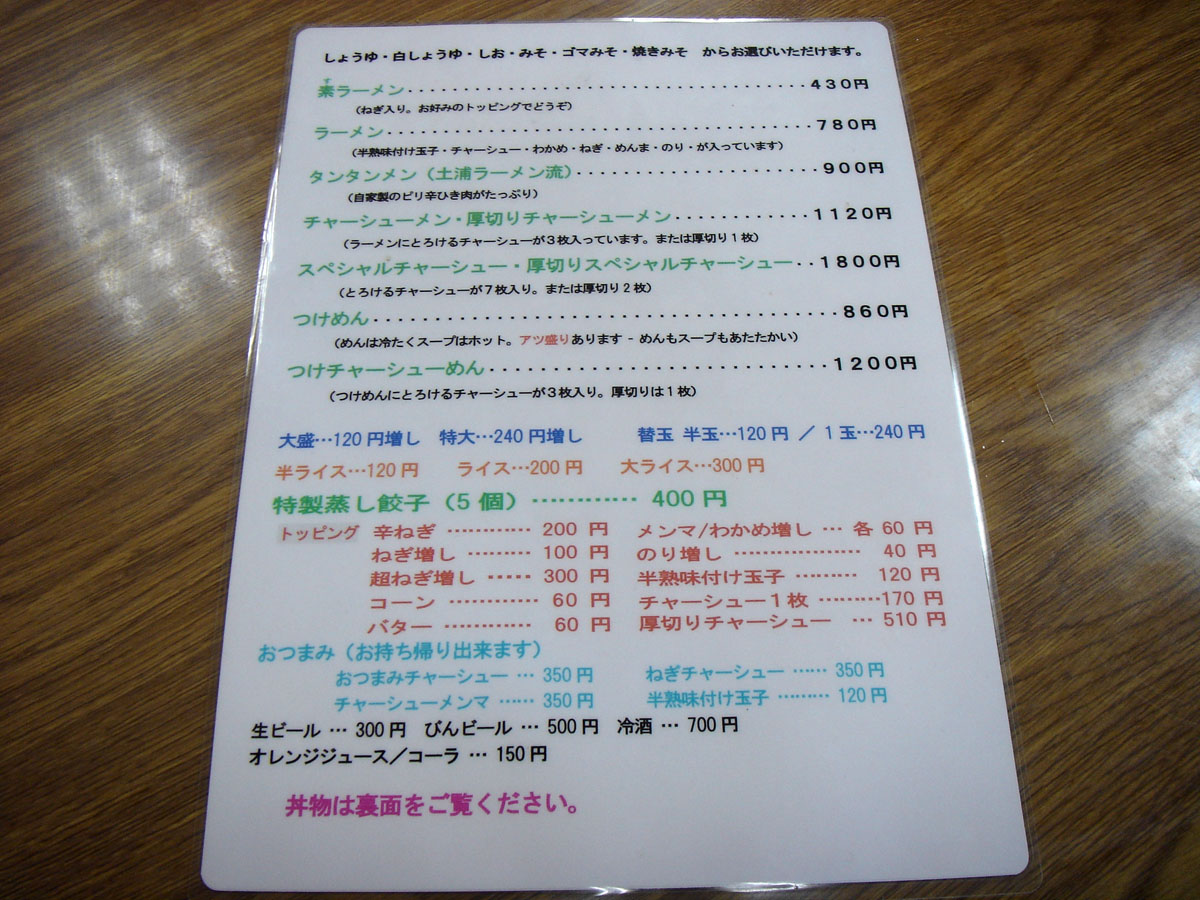 しょうゆ・白しょうゆ・しお・みそ・ゴマみそ・焼きみそ　からお選びいただけます。
す
素ラーメン・・・・・・・・・・・・・・・・・・・・・・・・・・・・・・・・・・・・430円
(ねぎ入り。お好みのトッピングでどうぞ)
ラーメン・・・・・・・・・・・・・・・・・・・・・・・・・・・・・・・・・・・・・780円
(半熟味付け玉子・チャーシュー・わかめ・ねぎ・めんま・のり・が入っています)
タンタンメン(土浦ラーメン流)・・・・・・・・・・・・・・・・・・・・・900円
(自家製のピリ辛ひき肉がたっぷり)
チャーシューメン・厚切りチャーシューメン・・・・・・・・・・・・1120円
(ラーメンにとろけるチャーシューが3枚入っています。または厚切り1枚)
スペシャルチャーシュー・厚切りスペシャルチャーシュー・・1800円
(とろけるチャーシューが7枚入り。または厚切り2枚)
つけめん・・・・・・・・・・・・・・・・・・・・・・・・・・・・・・・・・・・・・・860円
(めんは冷たくスープはホット。アツ盛りあります - めんもスープもあたたかい)
つけチャーシューめん・・・・・・・・・・・・・・・・・・・・・・・・・・・・1200円
(つけめんにとろけるチャーシューが3枚入り。厚切りは1枚)
大盛…120円増し　特大…240円増し　　替玉 半玉…120円 ／ 1玉…240円
半ライス…120円　ライス…200円　大ライス…300円
特製蒸し餃子(5個) ………… 400円
トッピング 辛ねぎ ………… 200円　メンマ/わかめ増し … 各60円
ねぎ増し ……… 100円　のり増し ……………… 40円
超ねぎ増し …… 300円　半熟味付け玉子 ……… 120円
コーン ………… 60円　チャーシュー1枚 ………170円
バター ………… 60円　厚切りチャーシュー … 510円
おつまみ(お持ち帰り出来ます)
おつまみチャーシュー … 350円　ねぎチャーシュー …… 350円
チャーシューメンマ …… 350円　半熟味付け玉子 ……… 120円
生ビール … 300円　びんビール … 500円　冷酒 … 700円
オレンジジュース／コーラ … 150円
丼物は裏面をご覧ください。